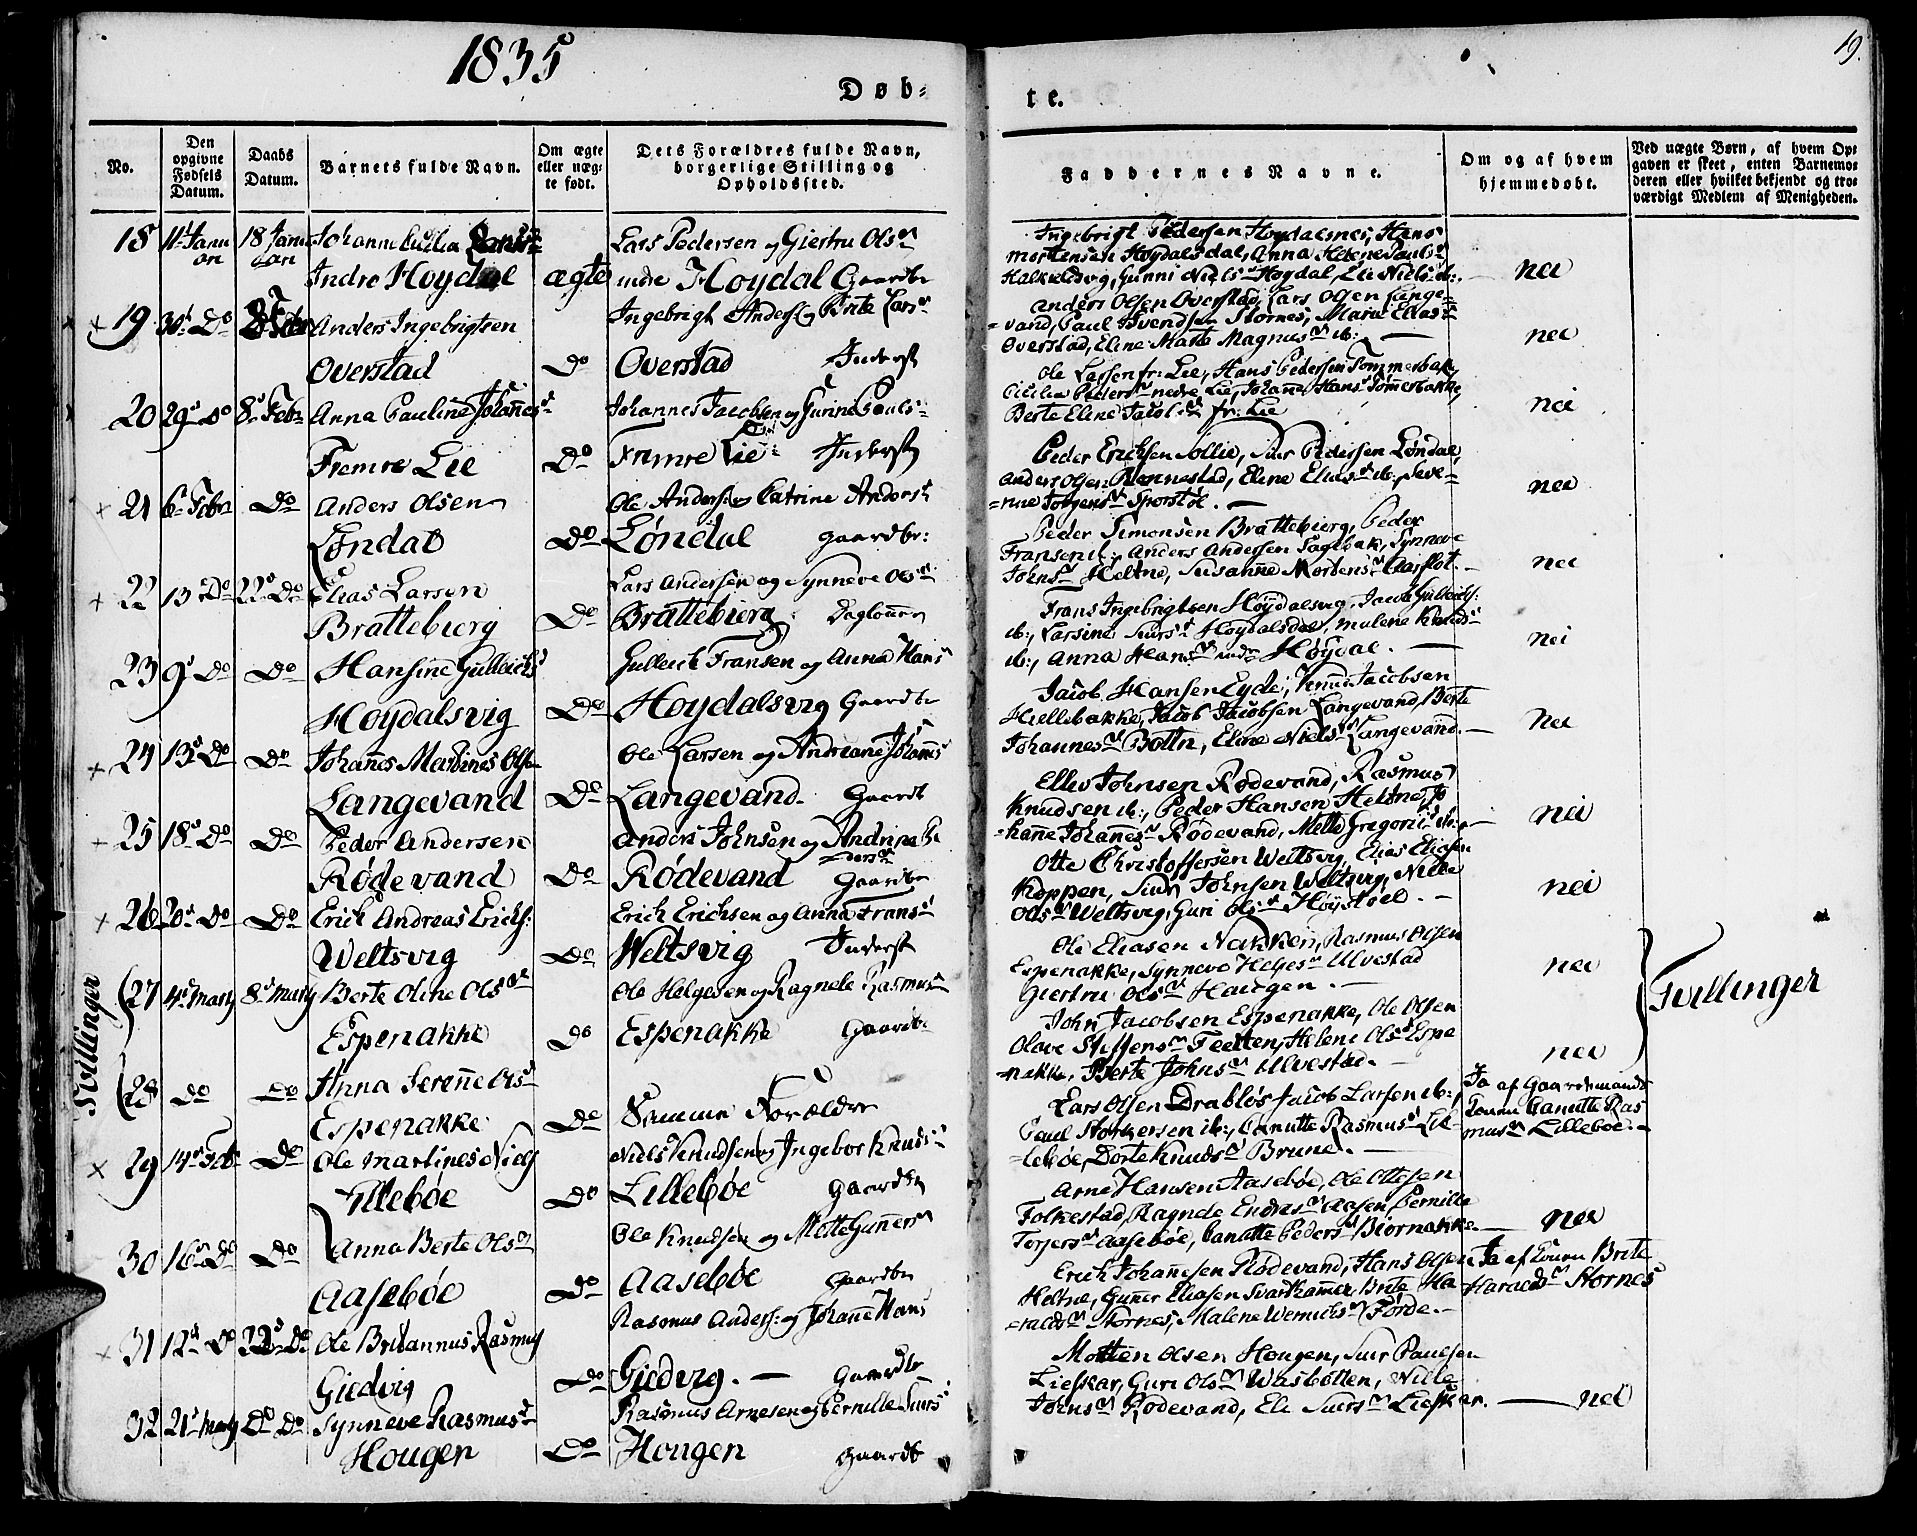 1835
19.
Døb-
te.
No.
Den opgivne Fødsels Datum.
Daabs Datum.
Barnets fulde Navn.
Om ægte eller uægte født.
Dets Forældres fulde Navn, borgerlige Stilling og Opholdssted.
Faddernes Navne.
Om og af hvem hjemmedøbt.
Ved uægte Børn, af hvem Opgaven er skeet, enten Barnemoderen eller hvilket bekjendt og troværdigt Medlem af Menigheden.
18 11t Janu 18 Janu Johanne Lars Pedersen og Giertru Olsn
Indre Hoydal ægte indre Hoydal Gaardbr
Ingebrigt Pedersen Hoydalsnes, Hans
Mortensen Hoydalsdal, Anna Helene Pauls
Gunni Niels Hoydal, Lie Niels ib:, nei
19 30t Do Anders Ingebrigtsen Ingebrigt Anders og Brite Larsn
Overstad Do Overstad Inderst
Anders Olsen Overstad, Lars Olsen Lange-
vand, Paul Svendsen Stornes, Marie Elias
Overstad, Eline Marte Magnusn ib: nei
20 29s Do 8s Febr Anna Pauline Johannesd Johannes Jacobsen og Gurine Pouls
Fremre Lie Do Fremre Lie Inderst
Ole Larsen fr: Lie, Hans Pedersen Tommerbak
Cicilia Peders nedre Lie, Johanne Hans Tommerbakke
Berte Eline Jacobsn fr: Lie nei
21 6t Febr Do Anders Olsen Ole Anders og Catrine Anders
Løndal Do Løndal Gaardbr:
Peder Erichsen Sollie, Siur Pedersen Løndal,
Anders Olsen Rønnestad, Eline Elias ib:, Seve-
rine Torgersn Sporstøl. nei
22 13 Do 22s Do Elias Larsen Lars Andersen og Synneve Olsn
Brattebierg Do Brattebierg
Peder Simonsen Brattebierg, Peder
Fransen ib:, Anders Andersen Sagebak, Synneve
Johnsn Heltne, Susanne Mortensn Aarflot. nei
23 9s Do Do Hansine Gullicks Gullick Fransen og Anna Hans
Hoydalsvig Do Hoydalsvig Gaardbr
Frans Ingebrigtsen Høydalsvig, Jacob Gullicks:
ib:, Larsine Siurs Hoydalsdal, Malene Knuds
ib:, Anna Hansn indre Høydal. nei
24 13s Do Do Johannes Martines Olsen Ole Larsen og Andreane Johannes
Langevand Do Langevand. Gaardb
Jacob Hansen Eyde, Knud Jacobsen
Hiellebakke, Jacob Jacobsen Langevand, Berte
Johannesn Bottn, Eline Niels Langevand. nei
25 18s Do Do Peder Andersen Anders Johnsen og
Rødevand Do Rødevand Gaardbr
Ellev Johnsen Rødevand, Rasmus
Knudsen ib:, Peder Hansen Heltne, Jo
hane Johannesn Rødevand, Mette Gregorius nei
26 20s Do Do Erich Andreas Erichs: Erich Erichsen og Anna Frans
Weltsvig Do Weltsvig Inderst
Otte Christoffersen Weltsvig, Elias Eliasen
Koppen, Siur Johnsen Weltsvig, Nille
Olsn Weltsvig, Guri Olsn Høystøel. nei
Tvillinger
27 4s Marts 8s Marts Berte Oline Olsdr Ole Helgesen og Ragnele Rasmus
Espenakke Do Espenakke Gaardbr
Ole Eliasen Nakken, Rasmus Olsen
Espenakke, Synneve Helgesn Ulvestad
Giertru Olsn Haugen. nei
Tvillinger
28 Do Do Anna Serenne Ols
Espenakke Do Samme Forældre
John Jacobsen Espenakke, Ole Olsen
Olave Steffensn Helene Olss Espe
nakke, Berte Johnsn Ulvestad. nei
29 14s Feb Do Ole Martines Niels Niels Knudsen og Ingebor Knuds
Lillebøe Do Lillebøe Gaardbr
Lars Olsen Drabløs Jacob Larsen ib:,
Paul Storkersen ib:, Canutte Rasmus Lil-
lebøe, Dorte Knudsn Brune.
Ja af Gaardmands
Konen Canutte Ras
musn Lillebøe.
30 16s Do Do Anna Berte Olsn Ole Knudsen og Mette Gunnersn
Aasebøe Do Aasebøe Gaardbr
Arne Hansen Aasebøe, Ole Ottesen
Folkestad, Ragnele Endresn Aasen Pernille
Torgersn Aasebøe, Canutte Peders Biornakke nei
31 12s Do 22s Do Ole Britannus Rasmus Rasmus Anders: og Johanne Hans
Giedvig Do Giedvig. Gaardbr
Erich Johannesen Rødevand, Hans Olsen
Heltne, Gunner Eliasen Svartkammer Brite Ha-
raldsn Stornes, Malene Wernichsn Førde.
Ja af Konen Brite
Haraldsn Stornes
32 21s Marts Do Do Synneve Rasmus Rasmus Arnesen og Pernille Siurs
Hougen Do Hougen Gaardb
Morten Olsen Hougen, Siur Paulsen
Liefkar, Guri Olsn Wasbotten, Nille
Johnsn Rødevand, Eli Siursn Liefkar. nei